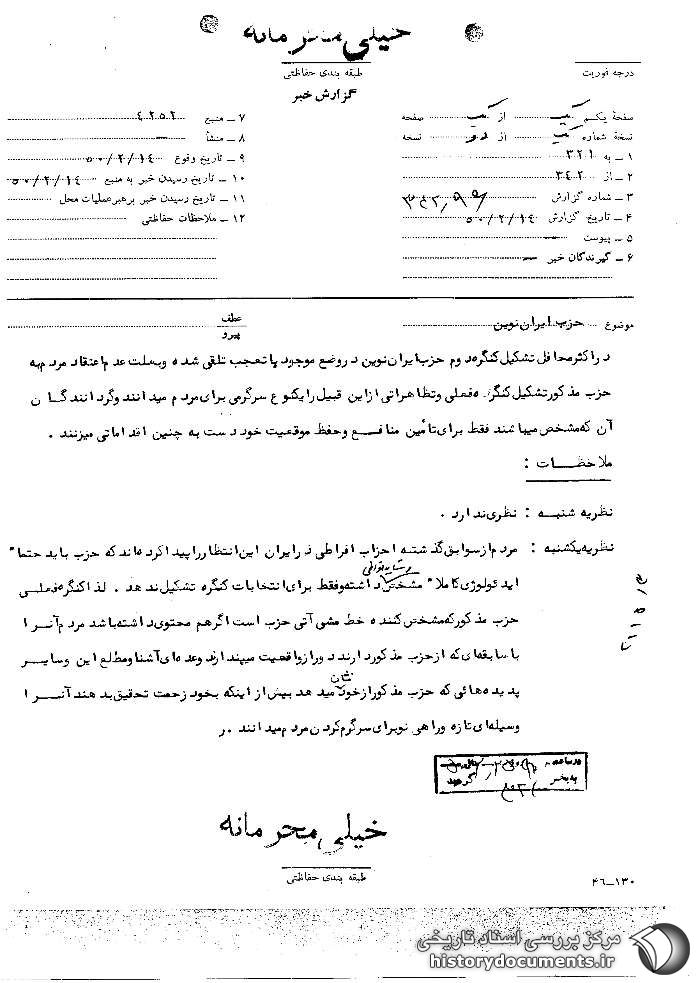 خیلی محرمانه
درجه فوریت
طبقه بندی حفاظتی
گزارش خبر
صفحه یکم از یک صفحه
نسخه شماره یک از دو نسخه
۱ ـ به ۳۲۱
۲ ـ از ۳۴۲
۳ ـ شماره گزارش
۴ ـ تاریخ گزارش ۵۰/۲/۱۴
۵ ـ پیوست ـ
۶ ـ گیرندگان خبر ـ
۷ ـ منبع ۴۲۵۲
۸ ـ منشأ ـ
۹ ـ تاریخ وقوع ۵۰/۲/۱۴
۱۰ ـ تاریخ رسیدن خبر به منبع ۵۰/۲/۱۴
۱۱ ـ تاریخ رسیدن خبر برهبر عملیات محل
۱۲ ـ ملاحظات حفاظتی
موضوع حزب ایران نوین
عطف
پیرو
در اکثر محافل تشکیل کنگره دوم حزب ایران نوین در وضع موجود با تعجب تلقی شده و بعلت عدم اعتقاد مردم به
حزب مذکور تشکیل کنگره فعلی و تظاهراتی از این قبیل را یکنوع سرگرمی برای مردم میدانند و گردانندگان
آن که مشخص میباشند فقط برای تأمین منافع و حفظ موقعیت خود دست به چنین اقداماتی میزنند .
ملاحظات :
نظریه شنبه : نظری ندارد .
نظریه یکشنبه : مردم از سوابق گذشته احزاب افراطی در ایران این انتظار را پیدا کرده اند که حزب باید حتماً
ایدئولوژی کاملاً مشخص داشته و فقط برای انتخابات کنگره تشکیل ندهد . لذا کنگره فعلی
حزب مذکور که مشخص کننده خط مشی آتی حزب است اگر هم محتوی داشته باشد مردم آنرا
با سابقه ای که از حزب مذکور دارند دور از واقعیت میپندارند و عده ای آشنا و مطلع این و سایر
پدیده هائی که حزب مذکور از خود نشان میدهد بیش از اینکه بخود زحمت تحقیق بدهند آنرا
وسیله ای تازه و راهی نو برای سرگرم کردن مردم میدانند .
خیلی محرمانه
طبقه بندی حفاظتی
۴۶ـ۱۳۰
مرکز بررسی اسناد تاریخی
historydocuments.ir